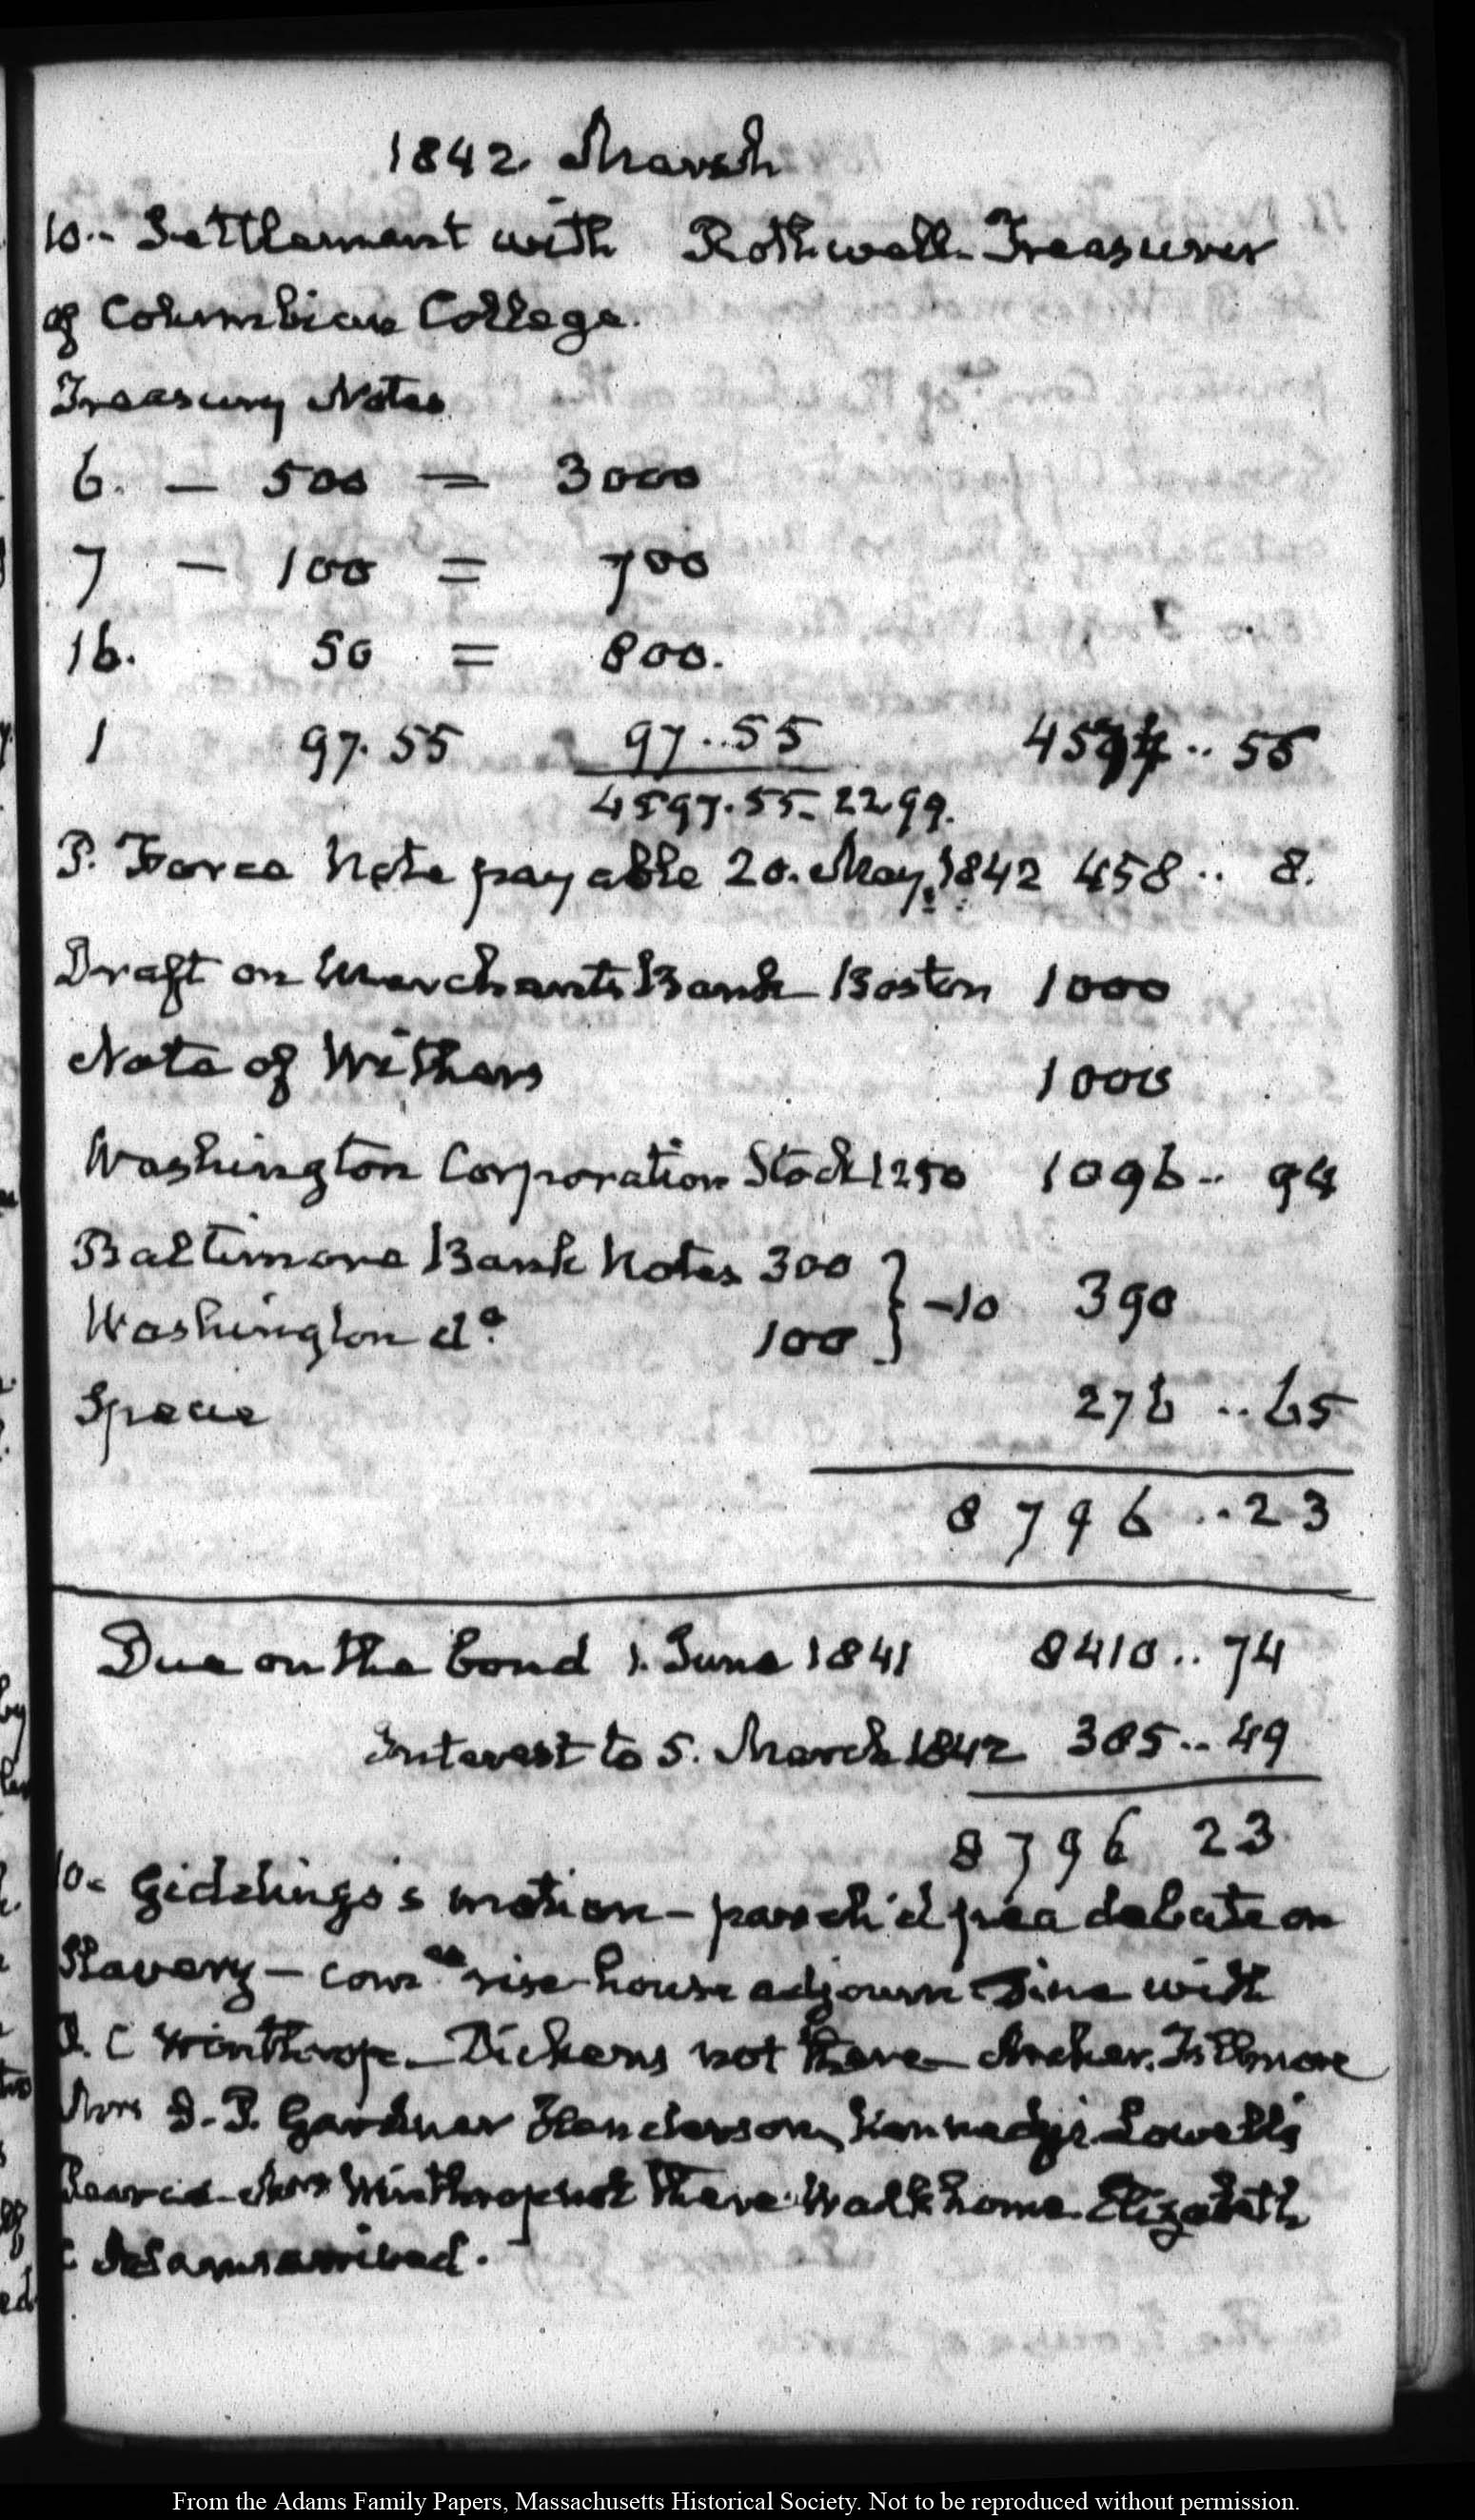 1842. March
10.. Settlement with Rothwell Treasurer
of Columbian College.
Treasury Notes
6. — 500 = 3000
7 — 100 = 700
16. 50 = 800.
1 97.55 97..55 4574..56
4597.55–22.99.
P. Force Note payable 20. May 1842 458.. 8.
Draft on Merchants Bank Boston 1000
Note of Withers 1000
Washington Corporation Stock 1250 1096.. 94
Baltimore Bank Notes 300 } –10 390
Washington do 100
Specie 276..65
8796..23
Due on the bond 1. June 1841 8410..74
Interest to 5. March 1842 385..49
8796 23
10. Giddings's motion – parch'd pea debate on
Slavery – comee rise house adjourn Dine with
R. C Winthrop – Dickens not there – Archer. Fillmore
Mrs J. P. Gardner Henderson, Kennedy Lowell's
Pearce – Mrs Winthrop not there. Walk home. Elizabeth
C Adams arrived.
From the Adams Family Papers, Massachusetts Historical Society. Not to be reproduced without permission.